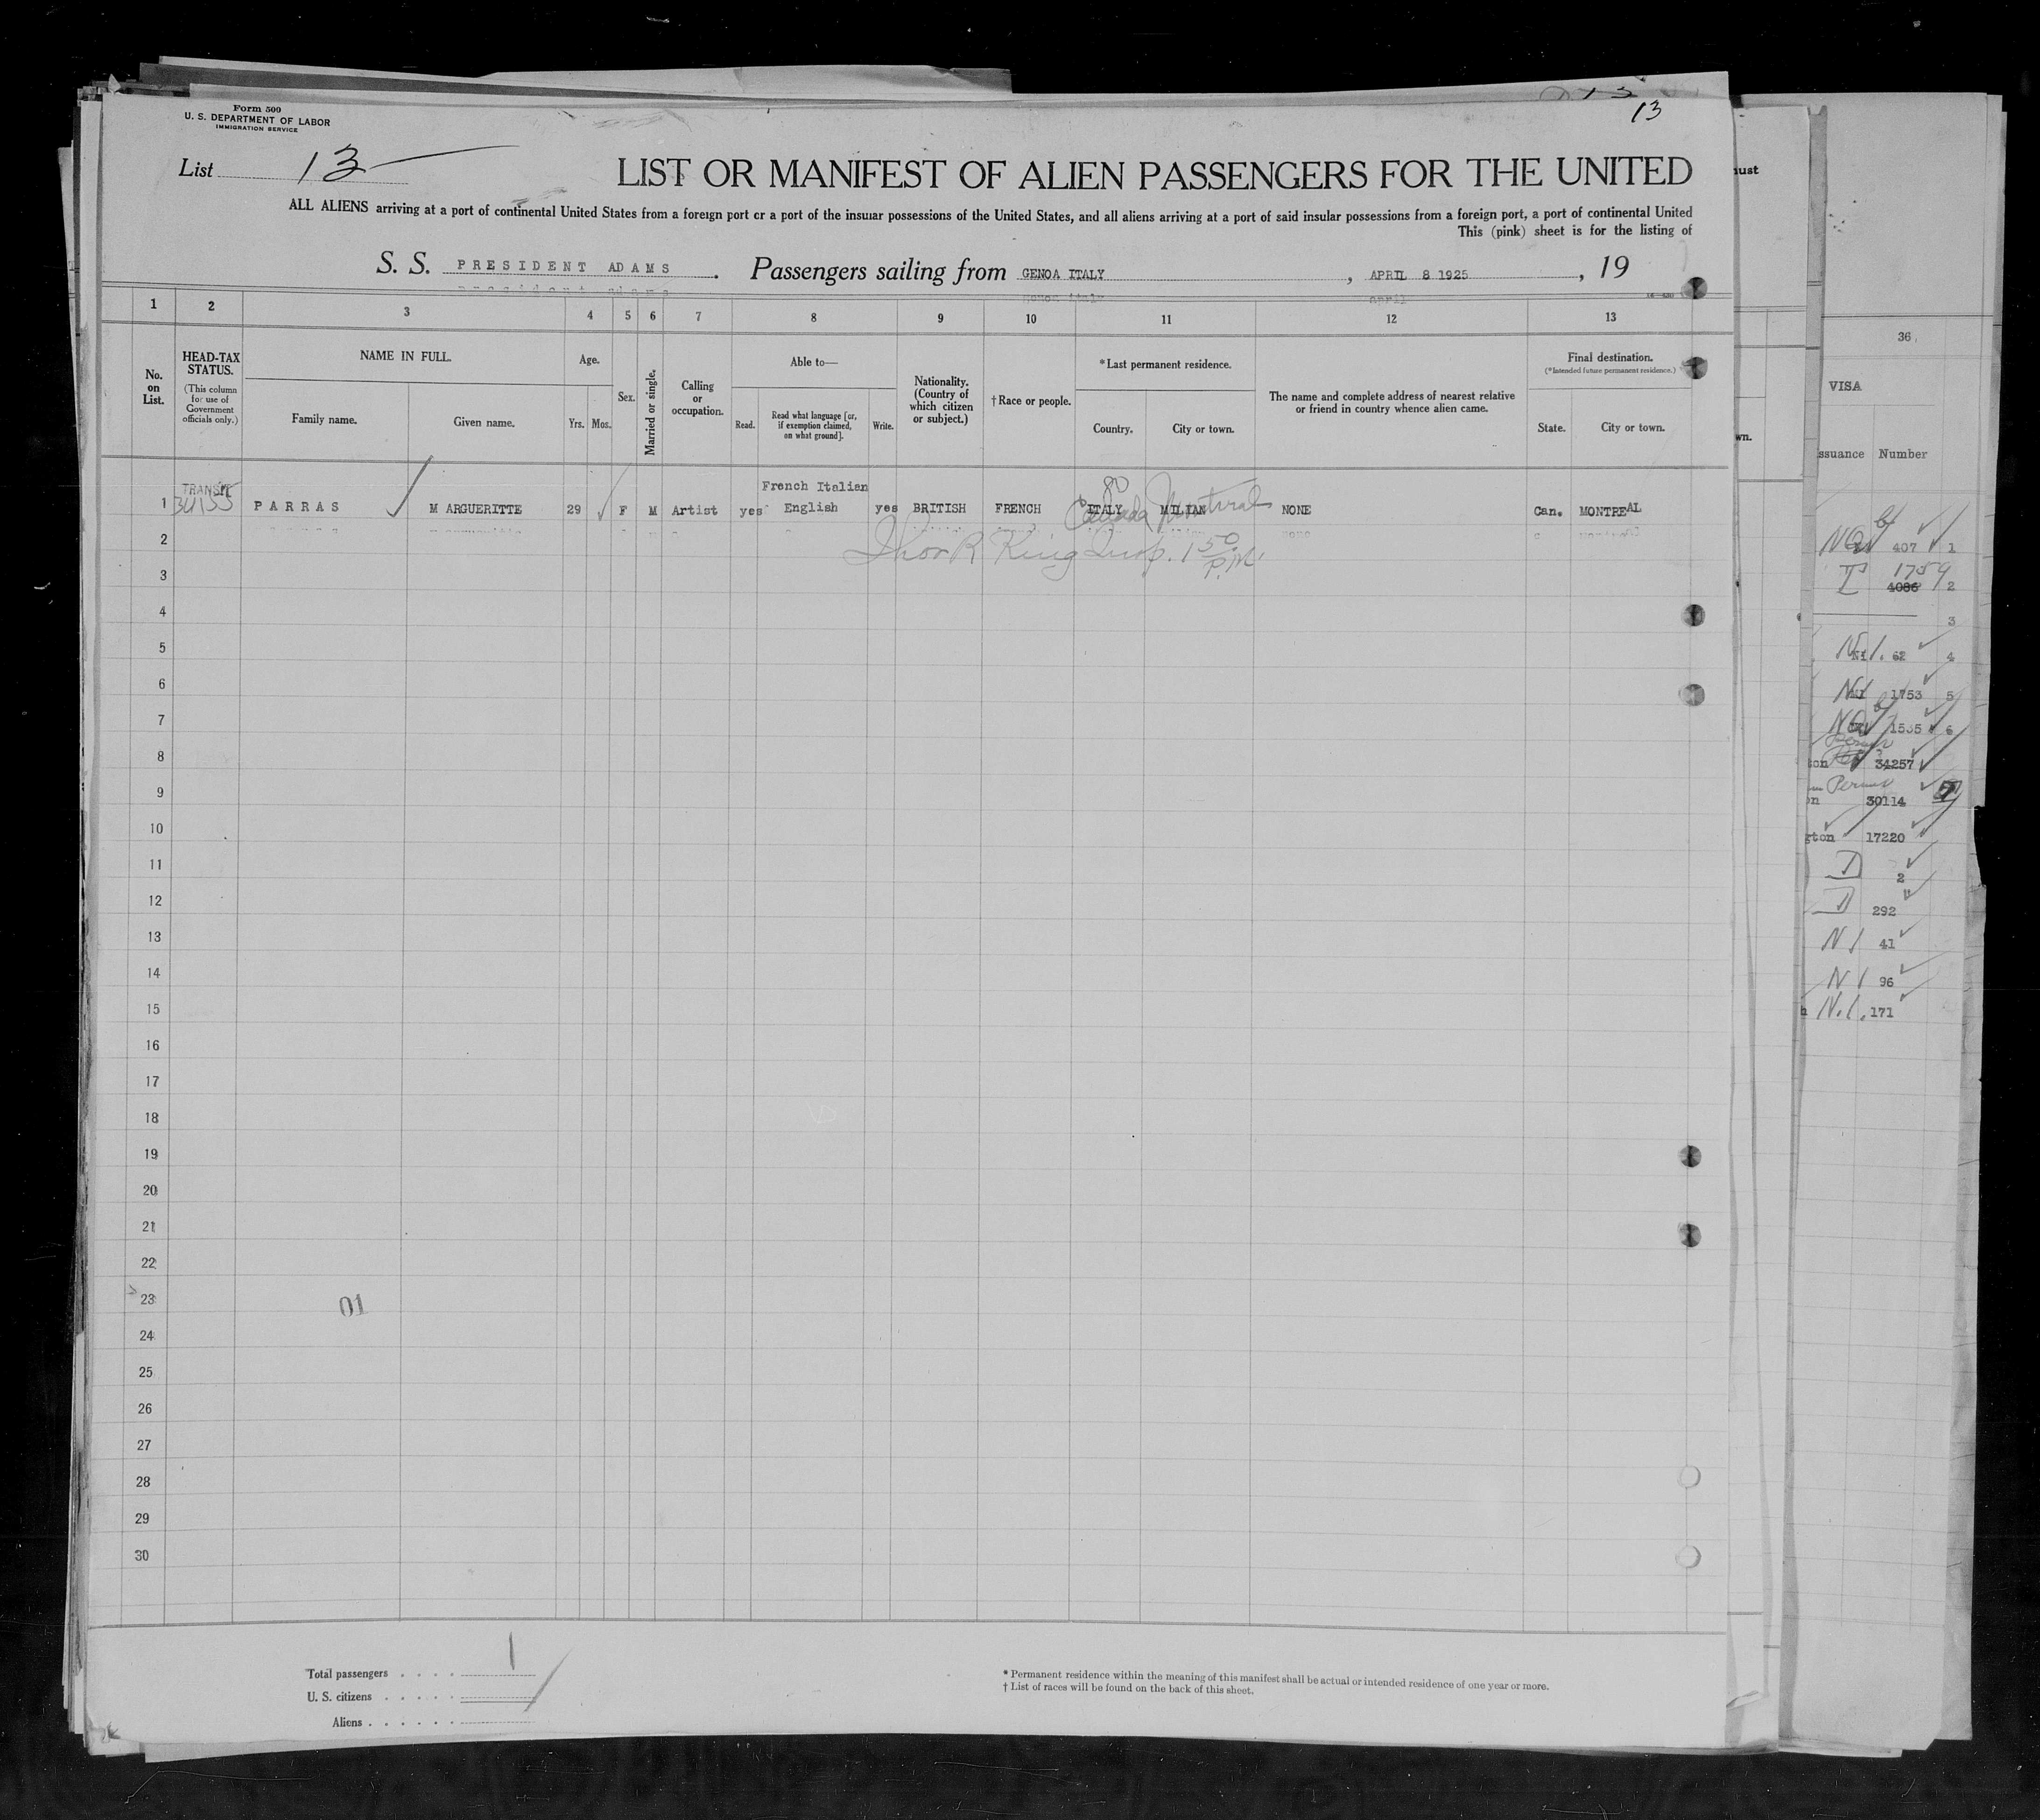 Form 500
U. S. DEPARTMENT OF LABOR
IMMIGRATION SERVICE
13
List 13
LIST OR MANIFEST OF ALIEN PASSENGERS FOR THE UNITED
ALL ALIENS arriving at a port of continental United States from a foreign port or a port of the insular possessions of the United States, and all aliens arriving at a port of said insular possessions from a foreign port, a port of continental United
This (pink) sheet is for the listing of
S. S. PRESIDENT ADAMS. Passengers sailing from GENOA ITALY, APRIL 8 1925, 19
1 2 3 4 5 6 7 8 9 10 11 12 13
No. on List.
HEAD-TAX STATUS.
(This column for use of Government officials only.)
NAME IN FULL.
Family name.
Given name.
Age.
Yrs. Mos.
Sex.
Married or single.
Calling or occupation.
Able to—
Read.
Read what language [or, if exemption claimed, on what ground].
Write.
Nationality. (Country of which citizen or subject.)
†Race or people.
*Last permanent residence.
Country.
City or town.
The name and complete address of nearest relative or friend in country whence alien came.
Final destination.
(*Intended future permanent residence.)
State.
City or town.
TRANSIT
1 34155 PARRAS M ARGUERITTE 29 F M Artist yes French Italian English yes BRITISH FRENCH ITALY MILIAN NONE Can. MONTREAL
80
Canada Montreal
2
King Insp. 1 50 P.M.
3
4
5
6
7
8
9
10
11
12
13
14
15
16
17
18
19
20
21
22
23
01
24
25
26
27
28
29
30
Total passengers . . . . 1
U. S. citizens . . . . .
Aliens . . . . . .
* Permanent residence within the meaning of this manifest shall be actual or intended residence of one year or more.
† List of races will be found on the back of this sheet.
ust
wn.
36
VISA
ssuance Number
407 1
1759
4086 2
3
N1. 62 4
1753 5
1535 6
34257
Permit
30114 7
gton 17220
D 2
D 292
N1 41
N1 96
N.1. 171